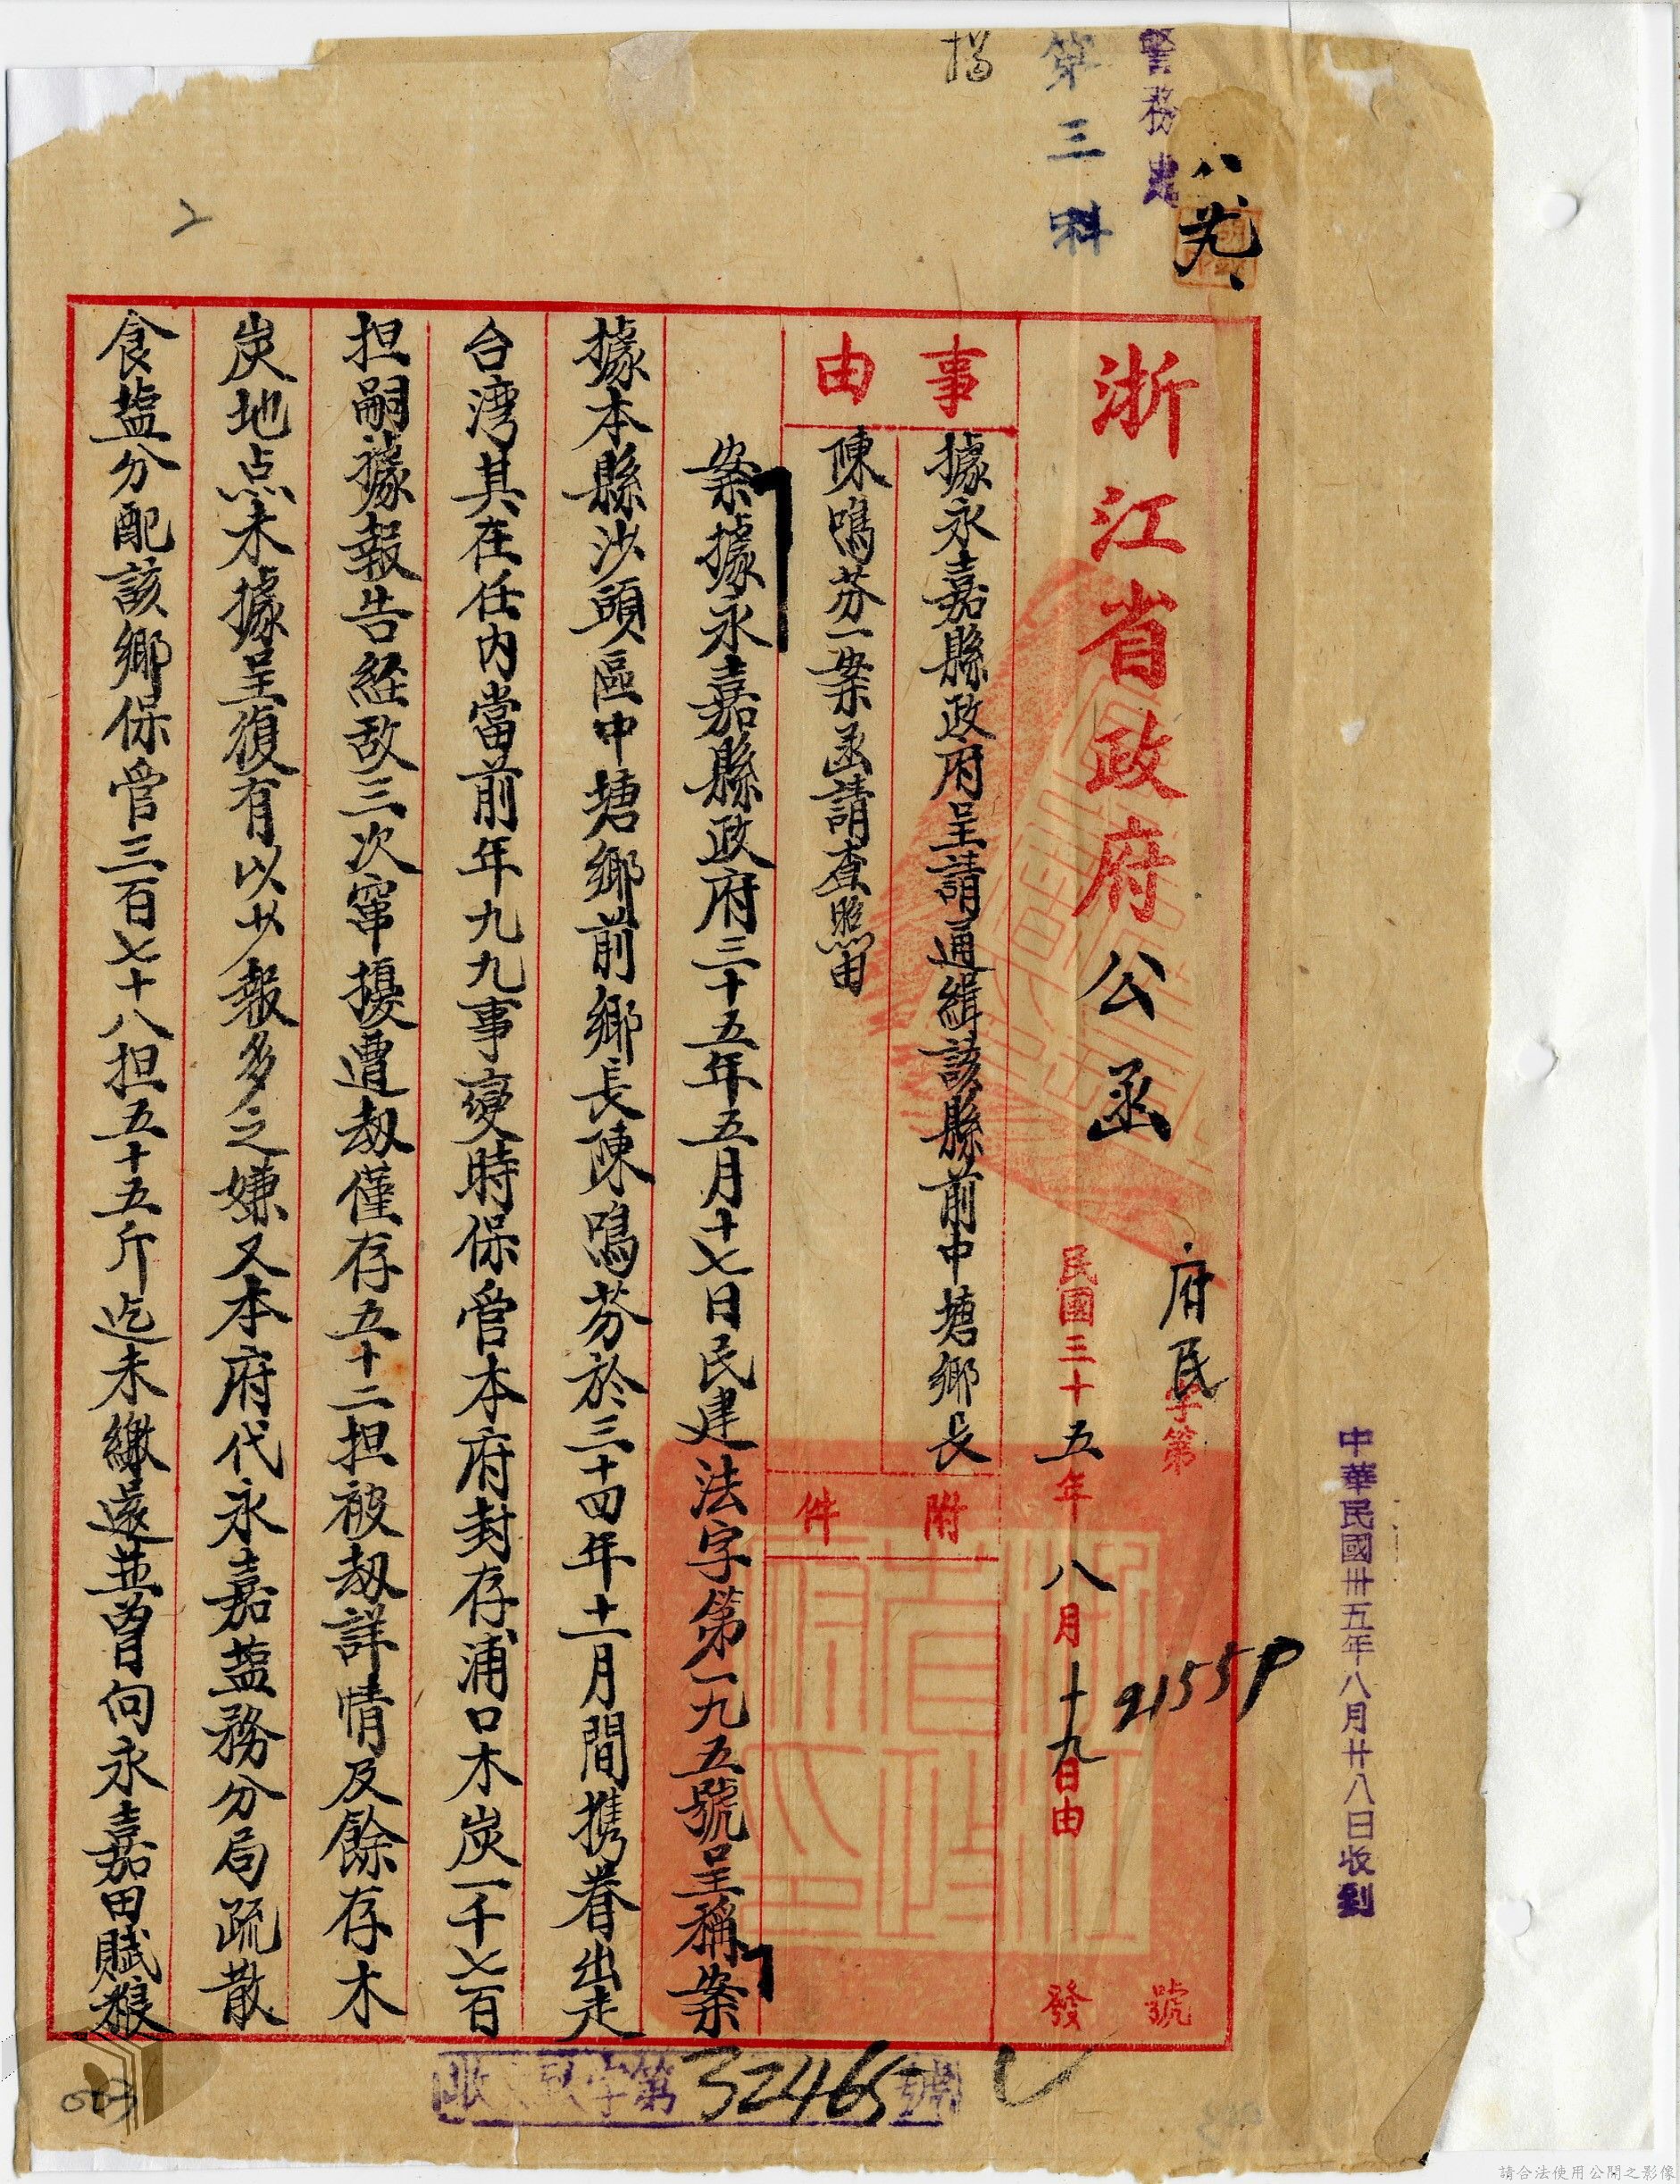 警務處
第三科
八、廿九、
浙江省政府公函
府民字第21559號
民國三十五年八月十九日由發
事由
據永嘉縣政府呈請通緝該縣前中塘鄉長
陳鳴芬一案函請查照由
附件
案據永嘉縣政府三十五年五月十七日民建法字第一九五號呈稱案
據本縣沙頭區中塘鄉前鄉長陳鳴芬於三十四年十一月間携眷出走
台湾其在任內當前年九九事變時保管本府封存浦口木炭一千七百
担嗣據報告経敌三次竄擾遭刼僅存五十二担被刼詳情及餘存木
炭地点未據呈復有以少報多之嫌又本府代永嘉盐務分局疏散
食盐分配該鄉保管三百七十八担五十五斤迄未繳還並曾向永嘉田賦粮
中華民國卅五年八月廿八日收到
收 字第32465號
2
請合法使用公開之影像